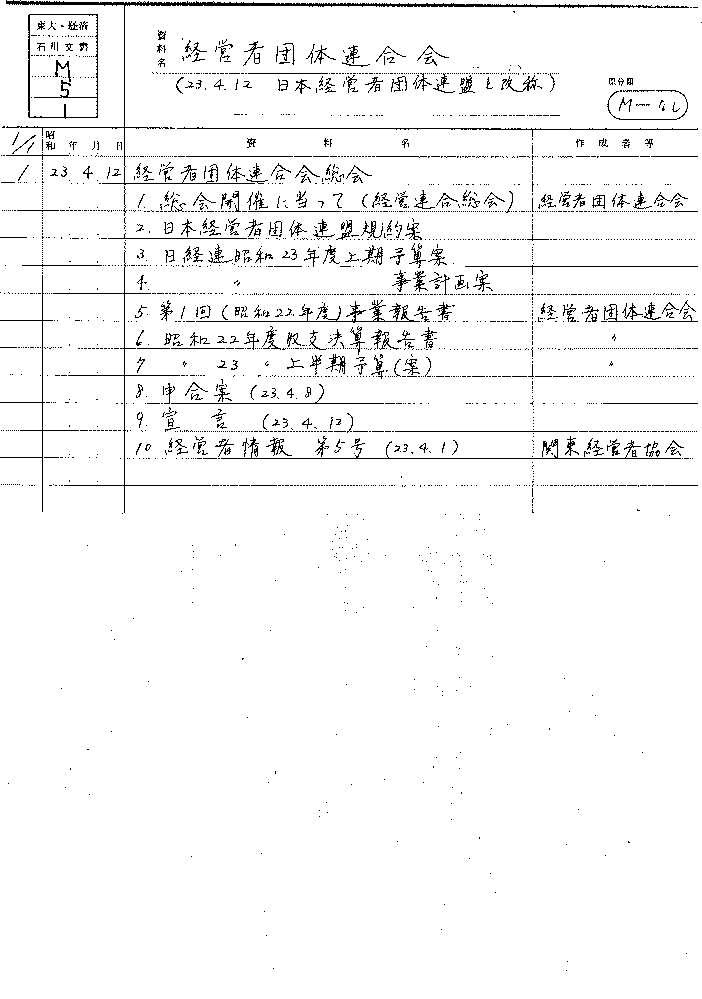 東大・経済
石川文書
M
5
1
資料名 経営者団体連合会
(23.4.12 日本経営者団体連盟と改称)
原分類
M-なし
1/1 昭和 年 月 日 資料名 作成者等
1 23 4 12 経営者団体連合会総会
1. 総会開催に当って(経営連合総会) 経営者団体連合会
2. 日本経営者団体連盟規約案
3. 日経連昭和23年度上期予算案
4. 〃 事業計画案
5. 第1回(昭和22年度)事業報告書 経営者団体連合会
6. 昭和22年度収支決算報告書 〃
7 〃 23 〃 上半期予算(案) 〃
8. 申合案 (23.4.8)
9. 宣言 (23.4.12)
10 経営者情報 第5号 (23.4.1) 関東経営者協会